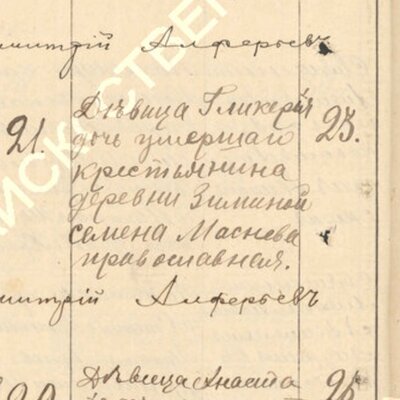 митрій Алферьевъ
21. Дѣвица Гликерія 23.
дочь умершаго
крестьянина
деревни Зиминой
Семена Маснева
православная.
митрій Алферьевъ
Дѣвица Анаста